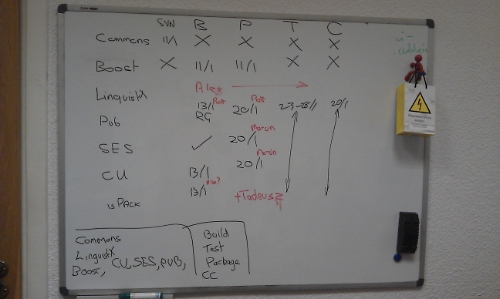 SVN B P T C
Commons 11/1 X X X X
Boost X 11/1 11/1 X X
LinguistX Alex
13/1 Piotr 20/1 Piotr 23-28/1 20/1
Pub RG
SES ✓ 20/1 Marcin
CU 13/1 20/1 Marcin
isPACK 13/1 +Tadeusz
Commons
LinguistX
Boost, CU, SES, PUB,
Build
Test
Package
CC